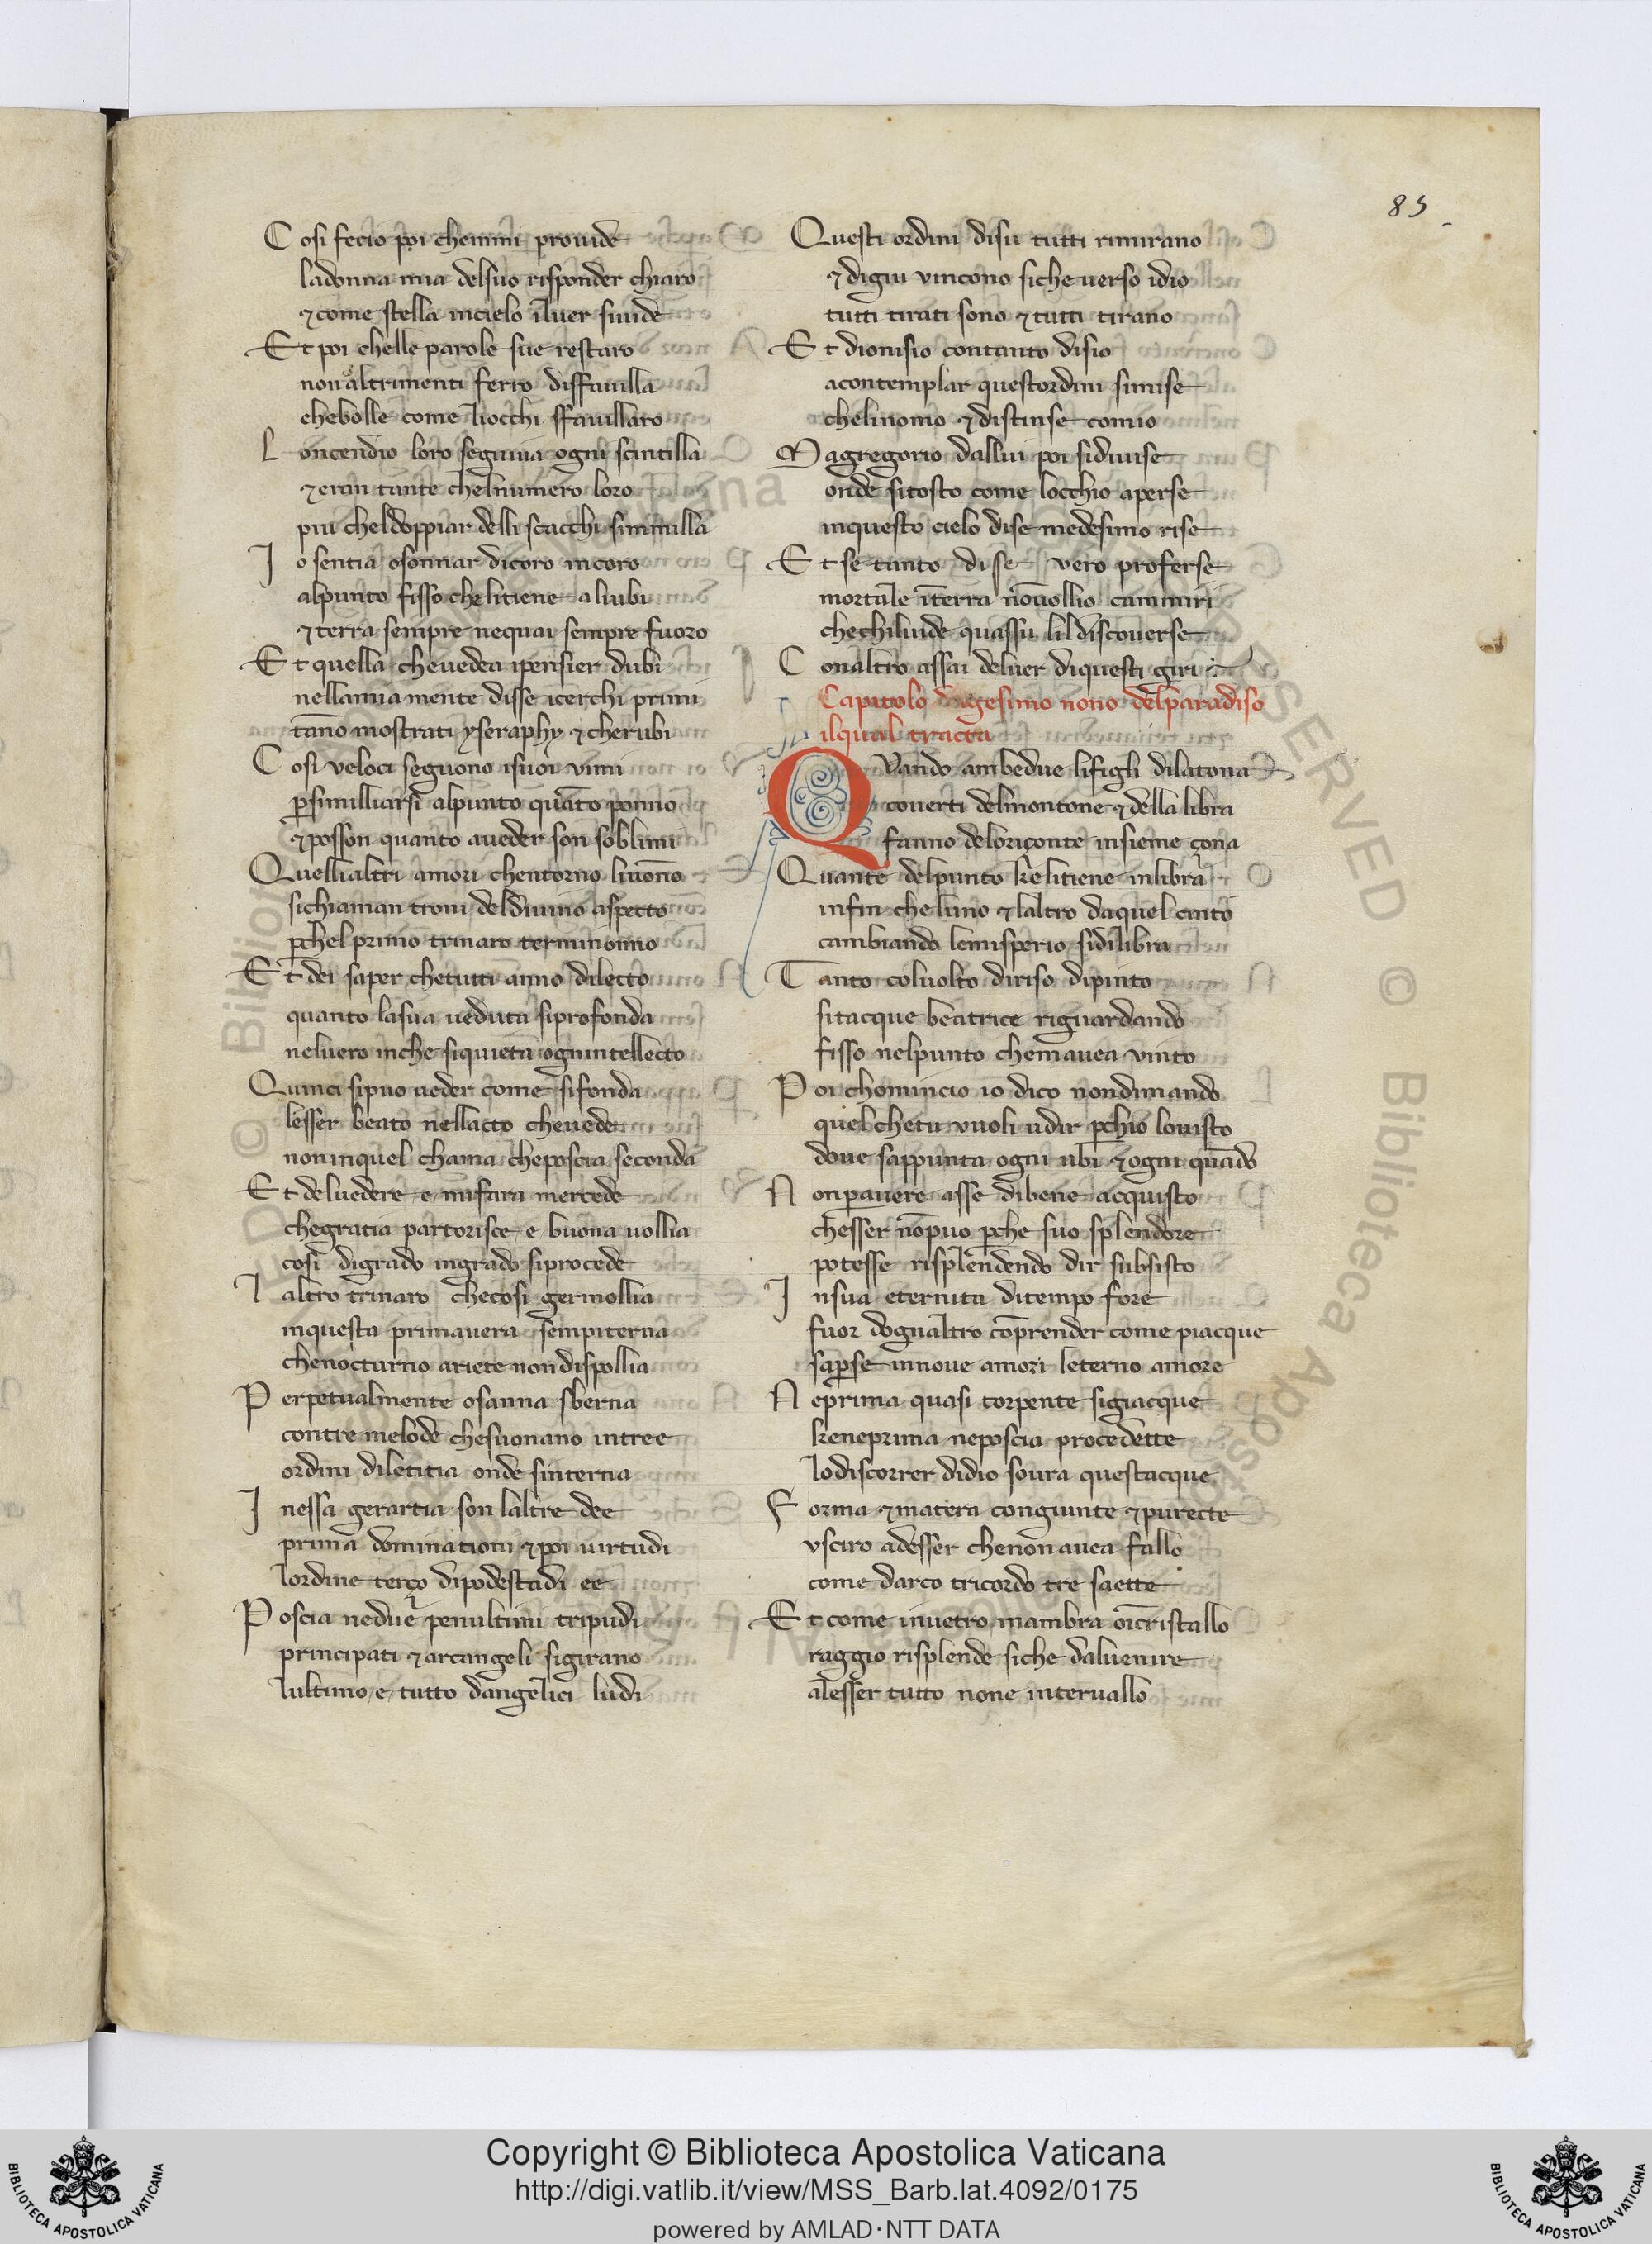 85
Cosi fecio poi chemmi prouide
ladonna mia delsuo risponder chiaro
⁊come stella incielo iluer siuide
Et poi chelle parole sue restaro
non altrimenti ferro diffauilla
chebolle come liocchi sfauillaro
Loncendio loro seguiuia ogni scintilla
⁊eran tante chelnumero loro
piu cheldoppiar delli scacchi simmilla
Io sentia osonnar dicoro incoro
alpunto fisso chelitiene aliubi
⁊terra sempre nequai sempre fuoro
Et quella cheuedea ipensier dubi
nellamia mente disse icerchi primi
tãno mostrati yseraphy ⁊ cherubi
Cosi veloci seguono isuoi vimi
ꝑsimilliarsi alpunto quãto ponno
⁊posson quanto aueder son soblimi
Quellialtri amori chentorno liuõno
sichiaman troni deldiuino aspecto
ꝑchel primo trinaro terminonno
Et dei saper chetutti anno dilecto
quanto lasua ueduta siprofonda
neluero inche siquieta ognintellecto
Quinci sipuo ueder come sifonda
lesser beato nellacto cheuede
noninquel chama cheposcia seconda
Et deluedere e misura mercede
chegratia partorisce e buona uollia
cosi digrado ingrado siprocede
Laltro trinaro checosi germollia
inquesta primauera sempiterna
chenocturno ariete nondispollia
Perpetualmente osanna sberna
contre melode chesuonano intree
ordini diletitia onde sinterna
Inessa gerartia son laltre dee
prima dominationi ⁊poi uirtudi
lordine terço dipodestadi ee
Poscia nedue penultimi tripudi
principati ⁊arcangeli sigirano
lultimo e tutto dangelici ludi
Questi ordini disu tutti rimirano
⁊digiu vincono siche uerso idio
tutti tirati sono ⁊tutti tirano
Et dionisio contanto disio
acontemplar questordini simise
chelinomo ⁊distinse comio
Magregorio dallui poi sidiuise
onde sitosto come locchio aperse
inquesto cielo dise medesimo rise
Et se tanto disse vero proferse
mortale ĩterra nõuollio cammiri
chechiluide quassu lildiscouerse
Conaltro assai deluer diquesti giri
Capitolo vigesimo nono delparadiso
ilqual tracta
QVando ambedue lifigli dilatona
couerti delmontone ⁊della libra
fanno deloriçonte insieme çona
Quante delpunto kelitiene inlibra
infin cheluno ⁊laltro daquel cinto
cambiando lemisperio sidilibra
Tanto coluolto diriso dipinto
sitacque beatrice riguardando
fisso nelpunto chemauea vinto
Poi chomincio io dico nondimando
quelchetu vuoli udir ꝑchio louisto
doue sappunta ogni ubi ⁊ogni quãdo
Nonꝑauere asse dibene acquisto
chesser nõpuo ꝑche suo splendore
potesse risplendendo dir subsisto
Insua eternita ditempo fore
fuor dognaltro cõprender come piacque
saꝑse innoue amori leterno amore
Neprima quasi torpente sigiacque
keneprima neposcia procedette
lodiscorrer didio soura questacque
Forma ⁊matera congiunte ⁊purecte
vsciro adesser chenonauea fallo
come darco tricordo tre saette
Et come inuetro inambra oĩcristallo
raggio risplende siche daluenire
alesser tutto none interuallo
Copyright © Biblioteca Apostolica Vaticana
http://digi.vatlib.it/view/MSS_Barb.lat.4092/0175
powered by AMLAD·NTT DATA
BIBLIOTECA APOSTOLICA VATICANA
BIBLIOTECA APOSTOLICA VATICANA